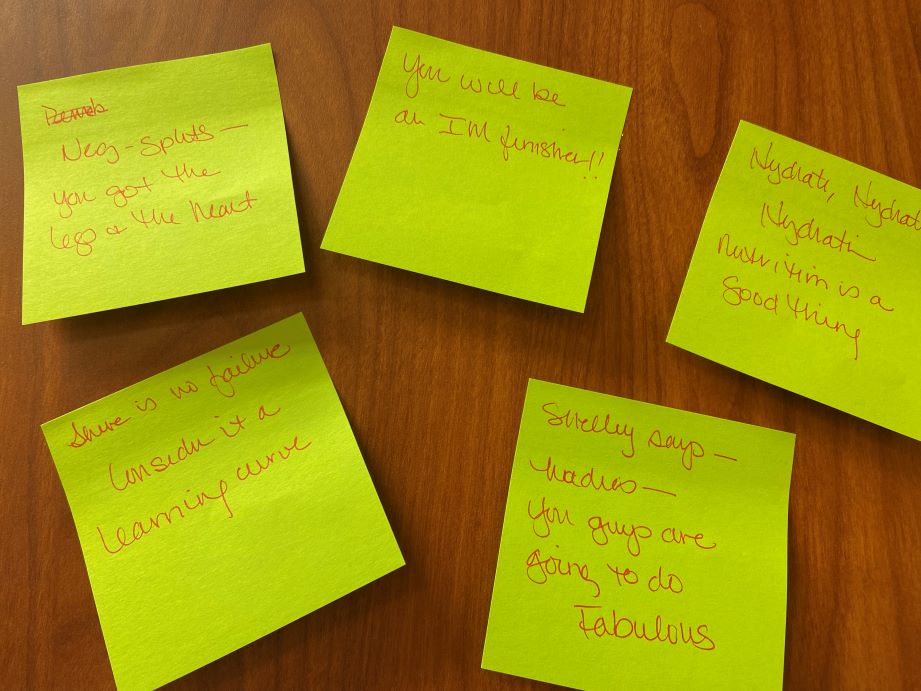 Neg-splits —
you got the
legs & the heart
You will be
an IM finisher!!
Hydrate, Hydrat
Hydrati
nutrition is a
Good thing
there is no failure
Consider it a
learning curve
Shelley says —
You guys are
going to do
Fabulous